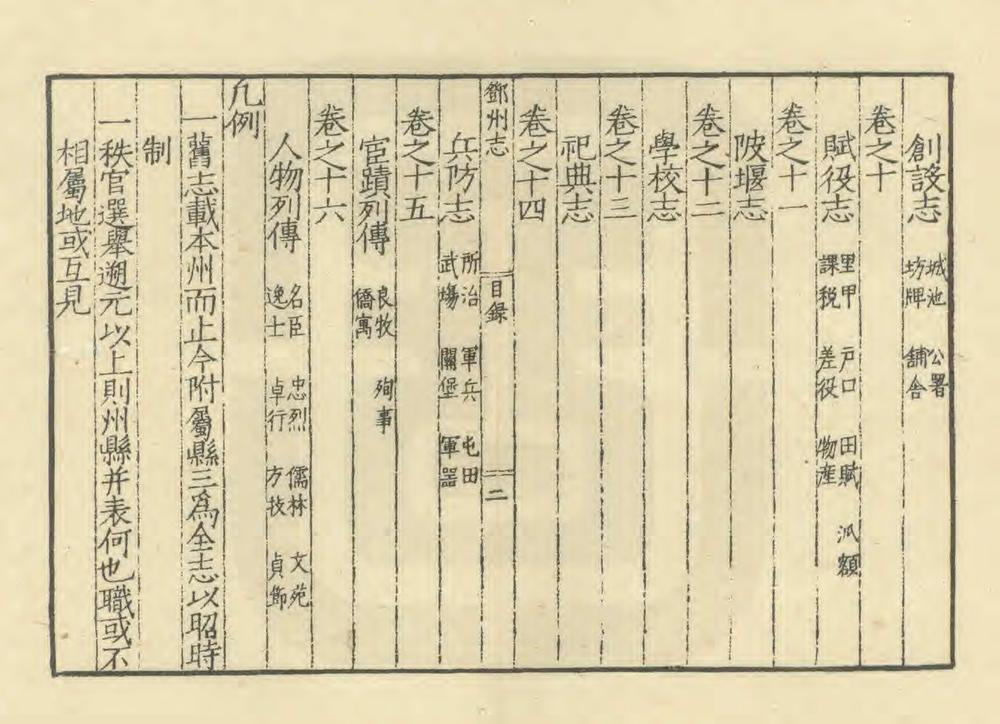 創設志 城池 公署 坊牌 舖舍
卷之十
賦役志 里甲 戶口 田賦 派額 課稅 差役 物產
卷之十一
陂堰志
卷之十二
學校志
卷之十三
祀典志
卷之十四
鄧州志 目録 二
兵防志 所治 軍兵 屯田 武塲 關堡 軍器
卷之十五
宦蹟列傳 良牧 殉事 僑寓
卷之十六
人物列傳 名臣 忠烈 儒林 文苑 逸士 卓行 方技 貞節
凡例
一舊志載本州而止今附屬縣三爲全志以昭時
制
一秩官選舉遡元以上則州縣并表何也職或不
相屬地或互見